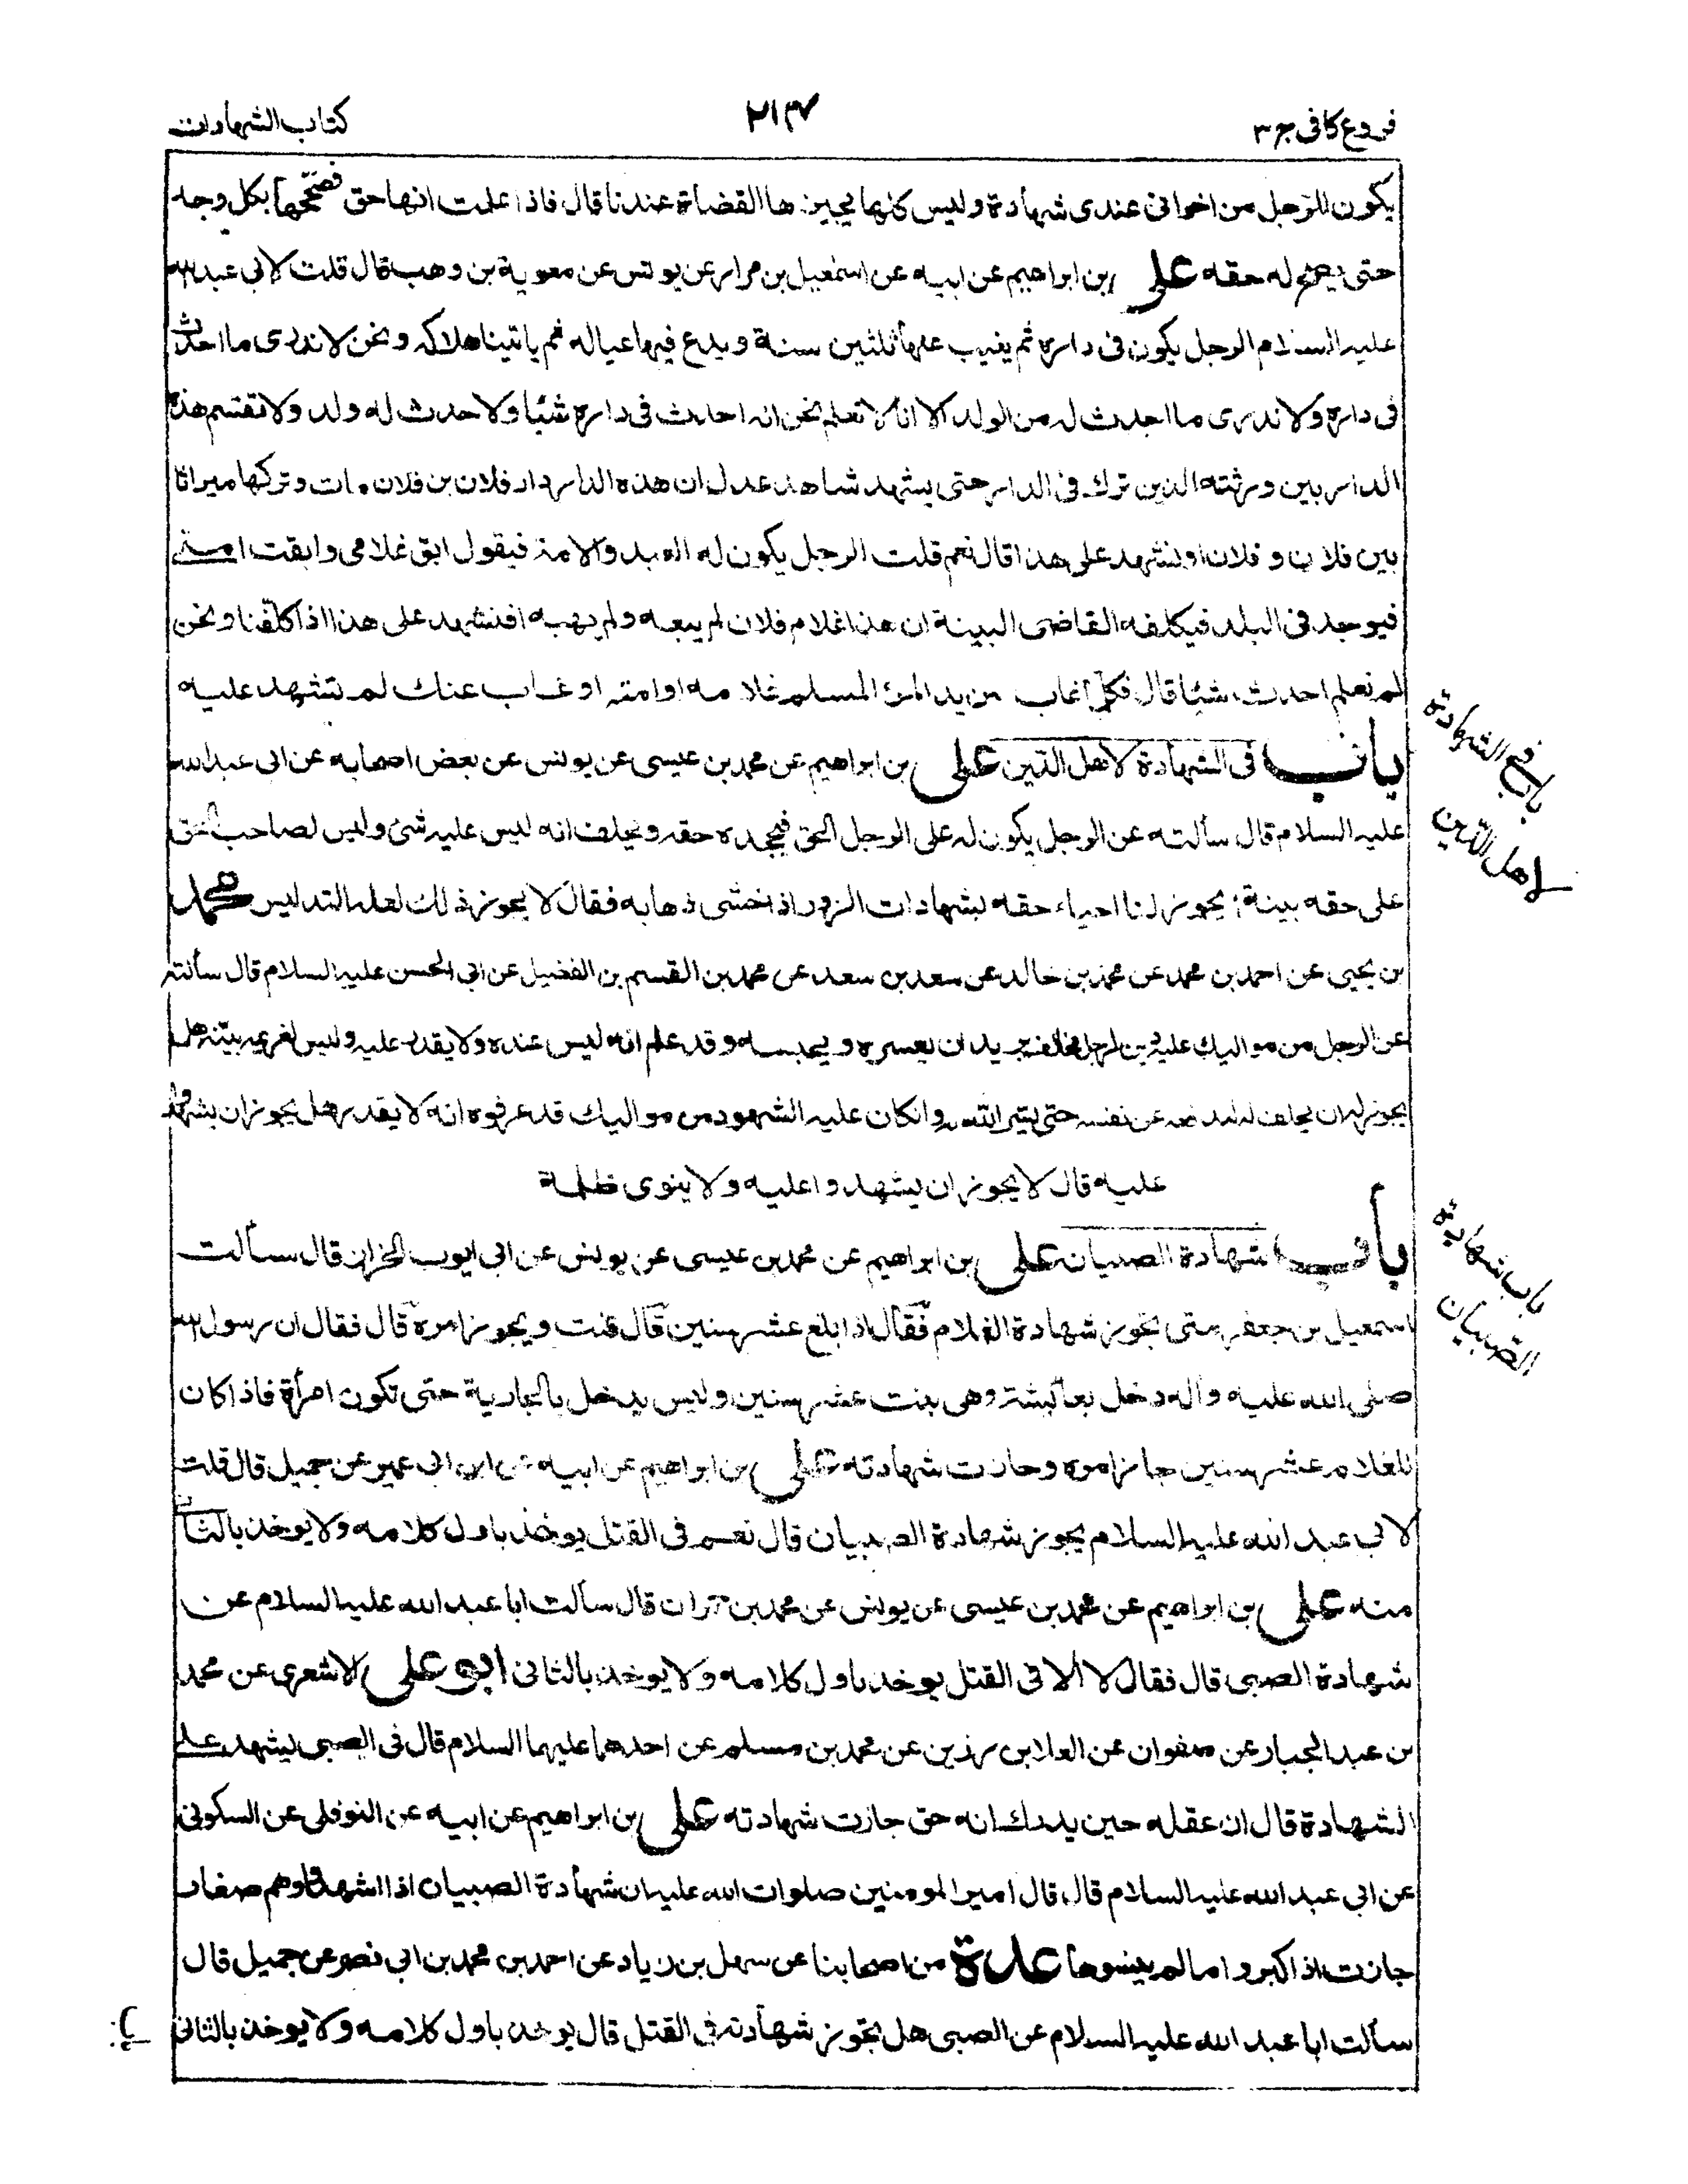 فروع كافى ج ٣
٢١٣
كتاب الشهادات
يكون للرجل من اخوانى عندى شهادة وليس كلها يجيزها القضاة عندنا قال فاذا علمت انها حق فصححها بكل وجه
حتى يصح له حقه على بن ابراهيم عن ابيه عن اسمعيل بن مرار عن يونس عن معوية بن وهب قال قلت لابى عبد الله
عليه السلام الرجل يكون فى داره ثم يغيب عنها ثلثين سنة و يدع فيها عياله ثم ياتينا هلاكه و نحن لا ندرى ما احدث
فى داره ولا ندرى ما احدث له من الولد الا انا لا نعلم نحن انه احدث فى داره شيئا ولا حدث له ولد ولا تقتسم هذه
الدار بين ورثته الذين ترك فى الدار حتى يشهد شاهدا عدل ان هذه الدار دار فلان بن فلان مات وتركها ميراثا
بين فلان و فلان او نشهد على هذا قال نعم قلت الرجل يكون له العبد والامة فيقول ابق غلامى وابقت امتى
فيوجد فى البلد فيكلفه القاضى البينة ان هذا غلام فلان لم يبعه و لم يهبه افنشهد على هذا اذا كلفنا و نحن
لم نعلم احدث شيئا قال فكلما غاب من يد المرئ المسلم غلامه او امته او غاب عنك لم تشهد عليه
باب فى الشهادة لاهل الدين على بن ابراهيم عن محمد بن عيسى عن يونس عن بعض اصحابه عن ابى عبد الله
عليه السلام قال سألته عن الرجل يكون له على الرجل الحق فيجحده حقه ويحلف انه ليس عليه شئ وليس لصاحب الحق
على حقه بينة يجوز لنا احياء حقه بشهادات الزور اذا خشى ذهابه فقال لا يجوز ذلك لعله التدليس محمد
بن يحيى عن احمد بن محمد عن محمد بن خالد عن سعد بن سعد عن محمد بن القسم بن الفضيل عن ابى الحسن عليه السلام قال سألته
عن الرجل من مواليك عليه دين لرجل مخالف يريد ان يعسره و يحبسه و قد علم انه ليس عنده ولا يقدر عليه وليس لغريمه بينة هل
يجوز له ان يحلف له ليدفعه عن نفسه حتى ييسر الله له وان كان عليه الشهود من مواليك قد عرفوه انه لا يقدر هل يجوز ان يشهدوا
عليه قال لا يجوز ان يشهدوا عليه ولا ينوى ظلمه
باب شهادة الصبيان على بن ابراهيم عن محمد بن عيسى عن يونس عن ابى ايوب الخزاز قال سألت
اسمعيل بن جعفر متى تجوز شهادة الغلام فقال اذا بلغ عشر سنين قال قلت و يجوز امره قال فقال ان رسول الله
صلى الله عليه وآله دخل بعائشة وهى بنت عشر سنين وليس يدخل بالجارية حتى تكون امرأة فاذا كان
للغلام عشر سنين جاز امره وجازت شهادته على بن ابراهيم عن ابيه عن ابن ابى عمير عن جميل قال قلت
لابى عبد الله عليه السلام يجوز شهادة الصبيان قال نعم فى القتل يوخذ باول كلامه ولا يوخذ بالثانى
منه على بن ابراهيم عن محمد بن عيسى عن يونس عن محمد بن حمران قال سألت ابا عبد الله عليه السلام عن
شهادة الصبى قال فقال لا الا فى القتل يوخذ باول كلامه و لا يوخذ بالثانى ابو على الاشعرى عن محمد
بن عبد الجبار عن صفوان عن العلا بن رزين عن محمد بن مسلم عن احدهما عليهما السلام قال فى الصبى يشهد على
الشهادة قال ان عقله حين يدرك انه حق جازت شهادته على بن ابراهيم عن ابيه عن النوفلى عن السكونى
عن ابى عبد الله عليه السلام قال قال امير المومنين صلوات الله عليه ان شهادة الصبيان اذا اشهدوا وهم صغار
جازت اذا كبروا ما لم ينسوها عدة من اصحابنا عن سهل بن زياد عن احمد بن محمد بن ابى نصر عن جميل قال
سألت ابا عبد الله عليه السلام عن الصبى هل تجوز شهادته فى القتل قال يوخذ باول كلامه ولا يوخذ بالثانى
باب فى الشهادة
لاهل الدين
باب شهادة
الصبيان